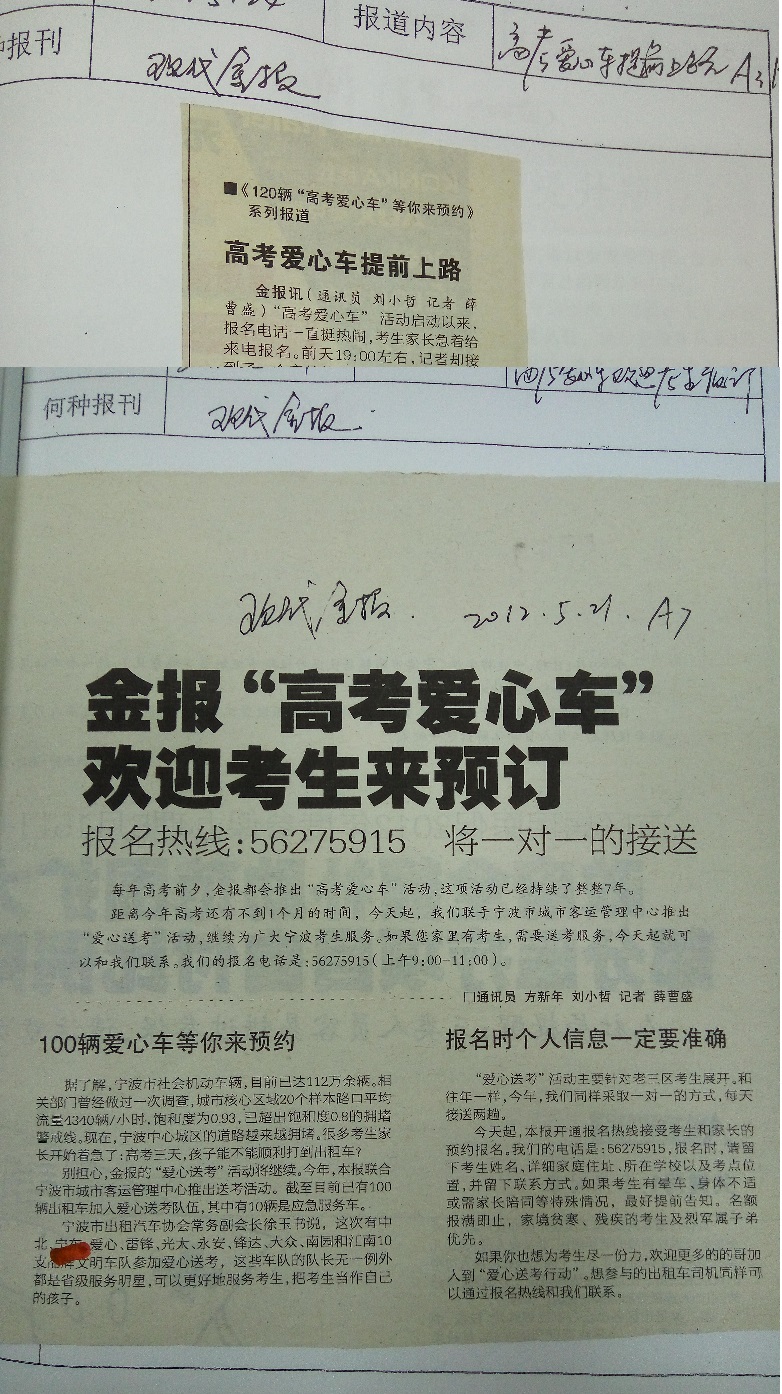 报道内容
高考爱心车提前上路 A3
种报刊
现代金报
■《120辆“高考爱心车”等你来预约》
系列报道
高考爱心车提前上路
金报讯（通讯员 刘小哲 记者 薛
曹盛）“高考爱心车”活动启动以来，
报名电话一直挺热闹，考生家长急着给
来电报名。前天19:00左右，记者却接
何种报刊
现代金报
现代金报. 2012.5.21. A7
金报“高考爱心车”
欢迎考生来预订
报名热线:56275915 将一对一的接送
每年高考前夕，金报都会推出“高考爱心车”活动，这项活动已经持续了整整7年。
距离今年高考还有不到1个月的时间，今天起，我们联手宁波市城市客运管理中心推出
“爱心送考”活动，继续为广大宁波考生服务。如果您家里有考生，需要送考服务，今天起就可
以和我们联系。我们的报名电话是:56275915(上午9:00-11:00)。
□通讯员 方新年 刘小哲 记者 薛曹盛
100辆爱心车等你来预约
据了解，宁波市社会机动车辆，目前已达112万余辆。相
关部门曾经做过一次调查，城市核心区域20个样本路口平均
流量4340辆/小时，饱和度为0.93，已超出饱和度0.8的拥堵
警戒线。现在，宁波中心城区的道路越来越拥堵。很多考生家
长开始着急了：高考三天，孩子能不能顺利打到出租车？
别担心，金报的“爱心送考”活动将继续。今年，本报联合
宁波市城市客运管理中心推出送考活动。截至目前已有100
辆出租车加入爱心送考队伍，其中有10辆是应急服务车。
宁波市出租汽车协会常务副会长徐玉书说，这次有中
北、宁东、爱心、雷锋、光太、永安、锋达、大众、南园和江南10
支品牌文明车队参加爱心送考，这些车队的队长无一例外
都是省级服务明星，可以更好地服务考生，把考生当作自己
的孩子。
报名时个人信息一定要准确
“爱心送考”活动主要针对老三区考生展开。和
往年一样，今年，我们同样采取一对一的方式，每天
接送两趟。
今天起，本报开通报名热线接受考生和家长的
预约报名。我们的电话是:56275915，报名时，请留
下考生姓名、详细家庭住址、所在学校以及考点位
置，并留下联系方式。如果考生有晕车、身体不适
或需家长陪同等特殊情况，最好提前告知。名额
报满即止，家境贫寒、残疾的考生及烈军属子弟
优先。
如果你也想为考生尽一份力，欢迎更多的的哥加
入到“爱心送考行动”。想参与的出租车司机同样可
以通过报名热线和我们联系。